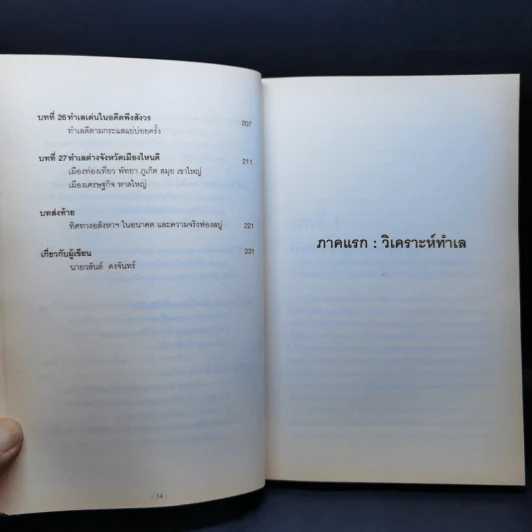 บทที่ 26 ทำเลเด่นในอดีตพึงสังวร 207
ทำเลดีตามกระแสแย่บ่อยครั้ง
บทที่ 27 ทำเลต่างจังหวัดเมืองไหนดี 211
เมืองท่องเที่ยว พัทยา ภูเก็ต สมุย เขาใหญ่
เมืองเศรษฐกิจ หาดใหญ่
บทส่งท้าย
ทิศทางอสังหาฯ ในอนาคต และความจริงฟองสบู่ 221
เกี่ยวกับผู้เขียน 231
นายวสันต์ คงจันทร์
14
ภาคแรก : วิเคราะห์ทำเล